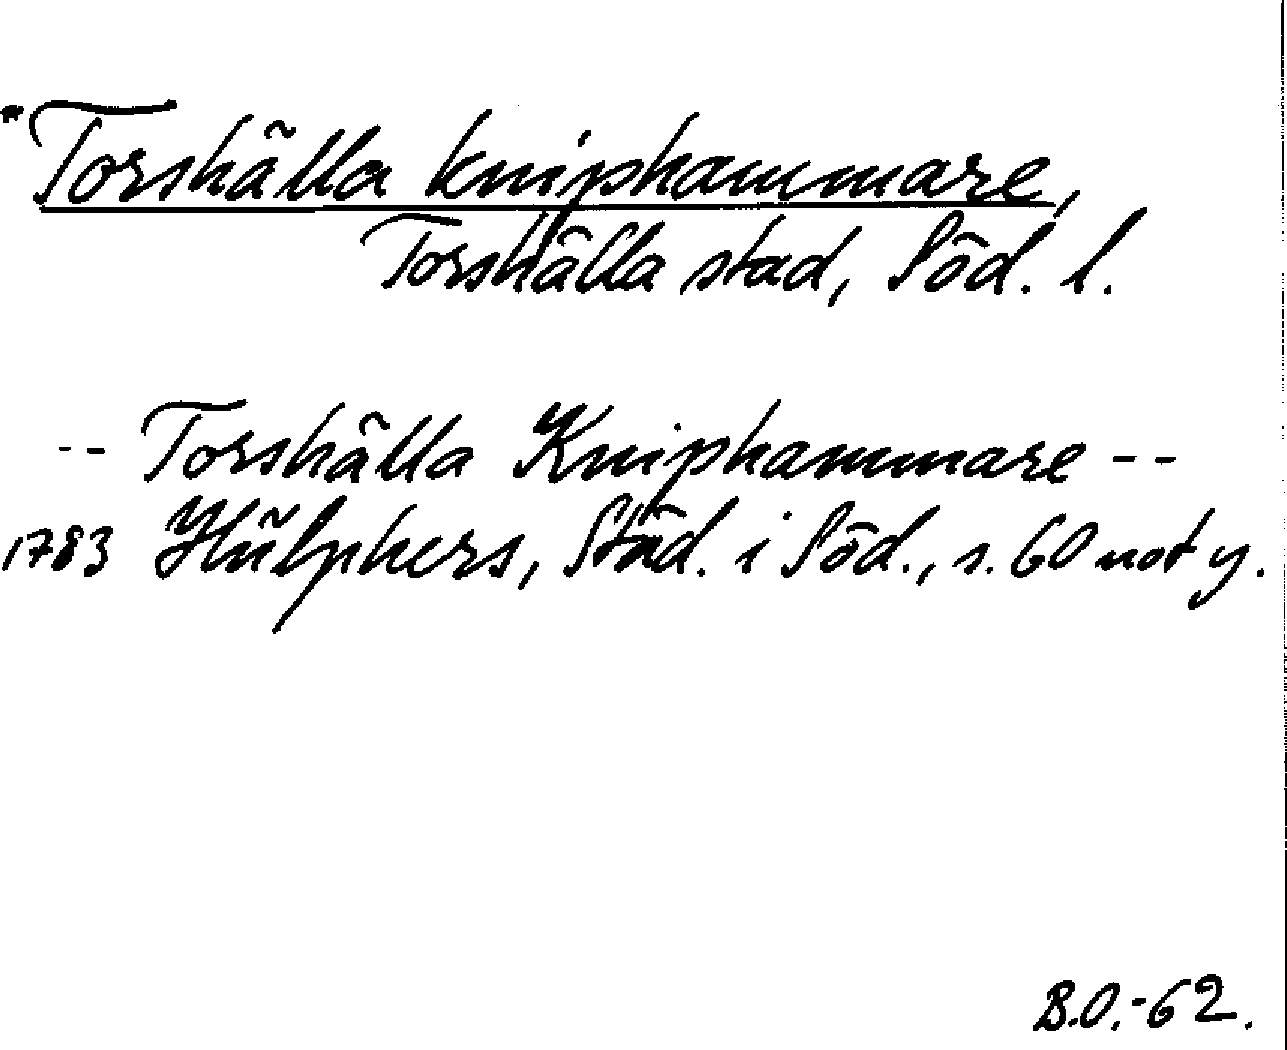 *Torshälla kniphammare,
Torshälla stad, Söd. l.
-- Torshälla Kniphammare --
1783 Hülphers, Städ. i Söd., s. 60 not y.
B.O.-62.